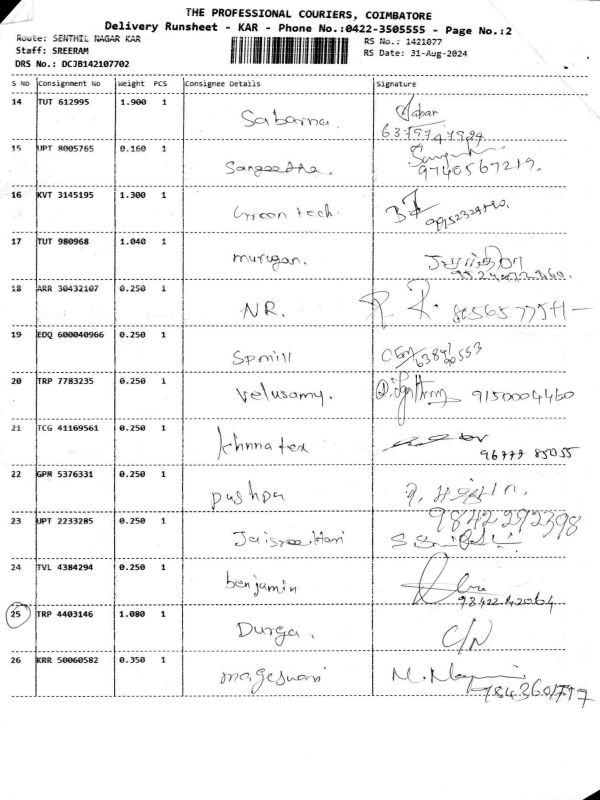 THE PROFESSIONAL COURIERS, COIMBATORE
Delivery Runsheet - KAR - Phone No.:0422-3505555 - Page No.:2
Route: SENTHIL NAGAR KAR RS No.: 1421077
Staff: SREERAM RS Date: 31-Aug-2024
DRS No.: DCJB142107702
S NO Consignment No Weight PCS Consignee Details Signature
14 TUT 612995 1.900 1 Sabarna
15 UPT 8005765 0.160 1 Sangeetha. 9740567219.
16 KVT 3145195 1.300 1 Green tech.
17 TUT 980968 1.040 1 murugan.
18 ARR 30432107 0.250 1 NR.
19 EDQ 600040966 0.250 1 Spmill
20 TRP 7783235 0.250 1 Velusamy. 9150004460
21 TCG 41169561 0.250 1 96777 85055
22 GPM 5376331 0.250 1 pushpa
23 UPT 2233285 0.250 1 Jaisree Hari 9842292398
24 TVL 4384294 0.250 1 benjamin 9842242064
25 TRP 4403146 1.080 1 Durga. C/N
26 KRR 50060582 0.350 1 mageswari